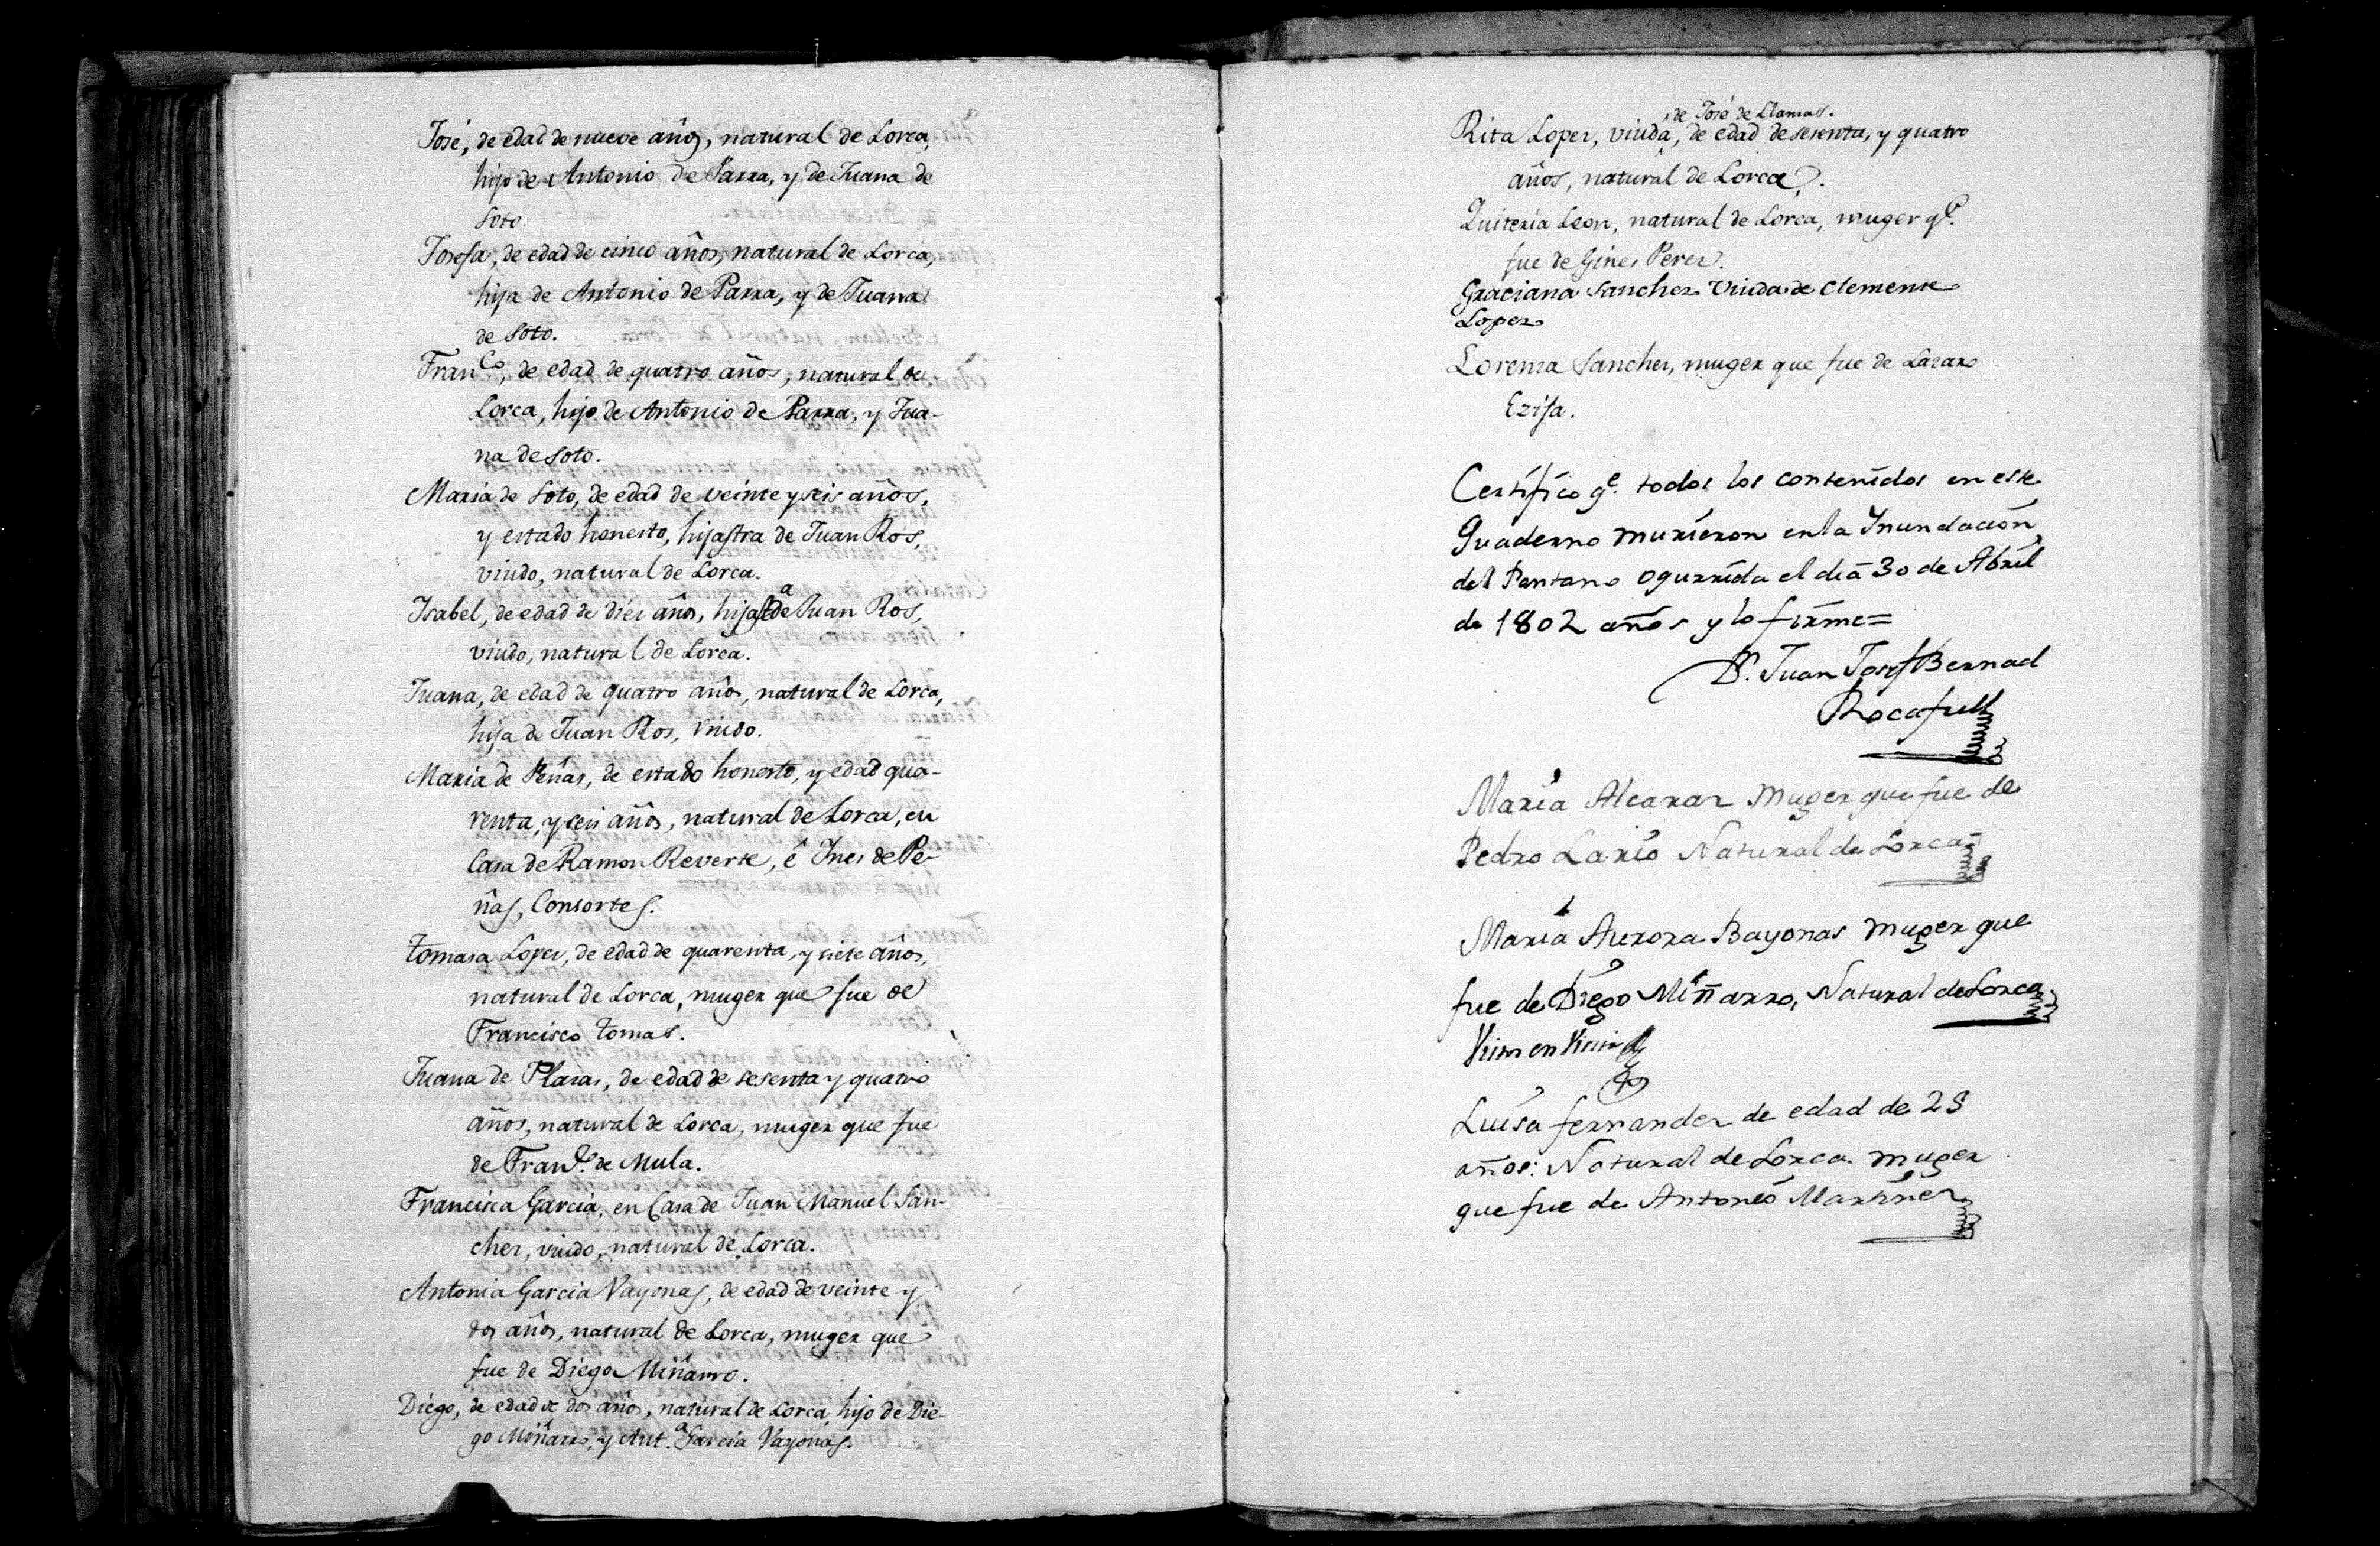 José, de edad de nueve años, natural de Lorca,
hijo de Antonio de Parra, y de Juana de
Soto.
Josefa, de edad de cinco años, natural de Lorca,
hija de Antonio de Parra, y de Juana
de Soto.
Fran.co, de edad de quatro años, natural de
Lorca, hijo de Antonio de Parra, y Jua-
na de Soto.
Maria de Soto, de edad de veinte y seis años,
y estado honesto, hijastra de Juan Ros,
viudo, natural de Lorca.
Isabel, de edad de diez años, hija de Juan Ros,
viudo, natural de Lorca.
Juana, de edad de quatro años, natural de Lorca,
hija de Juan Ros, viudo.
Maria de Peñas, de estado honesto, y edad qua-
renta, y seis años, natural de Lorca, en
Casa de Ramon Reverte, é Ines de Pe-
ñas, Consortes.
Tomasa Lopez, de edad de quarenta, y siete años,
natural de Lorca, muger que fue de
Francisco Tomas.
Juana de Plazas, de edad de sesenta y quatro
años, natural de Lorca, muger que fue
de Fran.co de Mula.
Francisca Garcia, en Casa de Juan Manuel San-
chez, viudo, natural de Lorca.
Antonia Garcia Vayonas, de edad de veinte y
dos años, natural de Lorca, muger que
fue de Diego Miñarro.
Diego, de edad de dos años, natural de Lorca, hijo de Die-
go Miñarro, y Ant.a Garcia Vayonas.
de José de Llamas.
Rita Lopez, viuda, de edad de sesenta, y quatro
años, natural de Lorca.
Quiteria Leon, natural de Lorca, muger q.e
fue de Gines Perez.
Graciana Sanchez Viuda de Clemente
Lopez
Lorenza Sanchez, muger que fue de Lazaro
Ezija.
Certifico q.e todos los contenidos en este
Quaderno murieron en la Inundacion
del Pantano ogurrida el dia 30 de Abril
de 1802 años y lo firme=
D.r Juan Josef Bernad
Rocafull
Maria Alcaraz Muger que fue de
Pedro Lario Natural de Lorca
Maria Aurora Bayonas muger que
fue de Diego Miñarro, Natural de Lorca
Luisa fernandez de edad de 28
años: Natural de Lorca. muger
que fue de Antonio Martinez